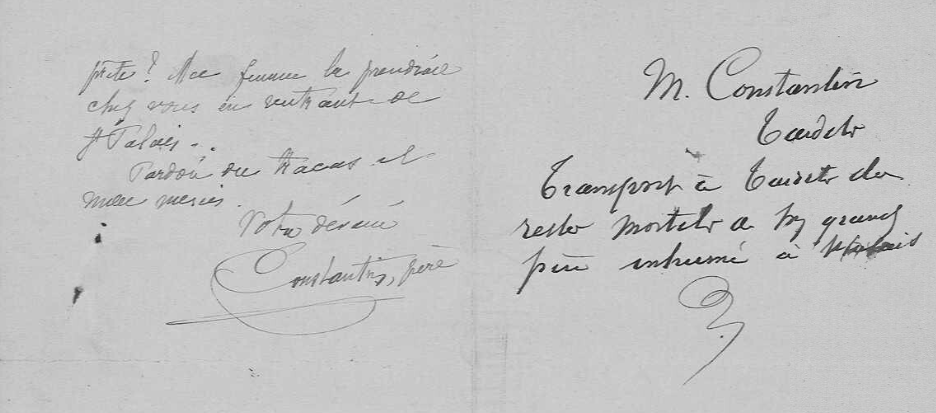 prête? Ma femme la prendrait
chez vous en rentrant de
St Palais..
Pardon du tracas et
mille mercis.
Votre dévoué
Constantin, père
M. Constantin
Tardets
Transport à Tardets des
restes mortels de grand
père inhumé à